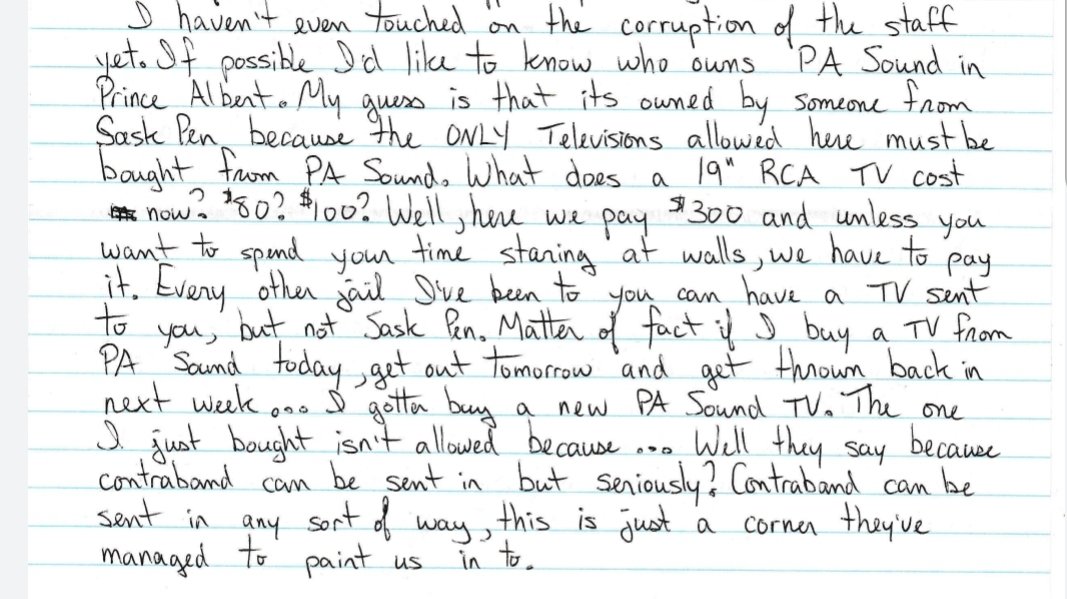 I haven't even touched on the corruption of the staff
yet. If possible I'd like to know who owns PA Sound in
Prince Albert. My guess is that its owned by someone from
Sask Pen because the ONLY Televisions allowed here must be
bought from PA Sound. What does a 19" RCA TV cost
now? $80? $100? Well, here we pay $300 and unless you
want to spend your time staring at walls, we have to pay
it. Every other jail I've been to you can have a TV sent
to you, but not Sask Pen. Matter of fact if I buy a TV from
PA Sound today, get out tomorrow and get thrown back in
next week ... I gotta buy a new PA Sound TV. The one
I just bought isn't allowed because ... Well they say because
contraband can be sent in but seriously? Contraband can be
sent in any sort of way, this is just a corner they've
managed to paint us in to.